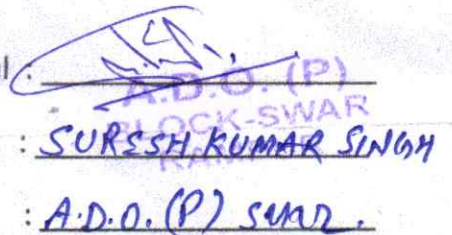 :
A.D.O. (P)
BLOCK-SWAR
: SURESH KUMAR SINGH
: A.D.O. (P) SWAR.